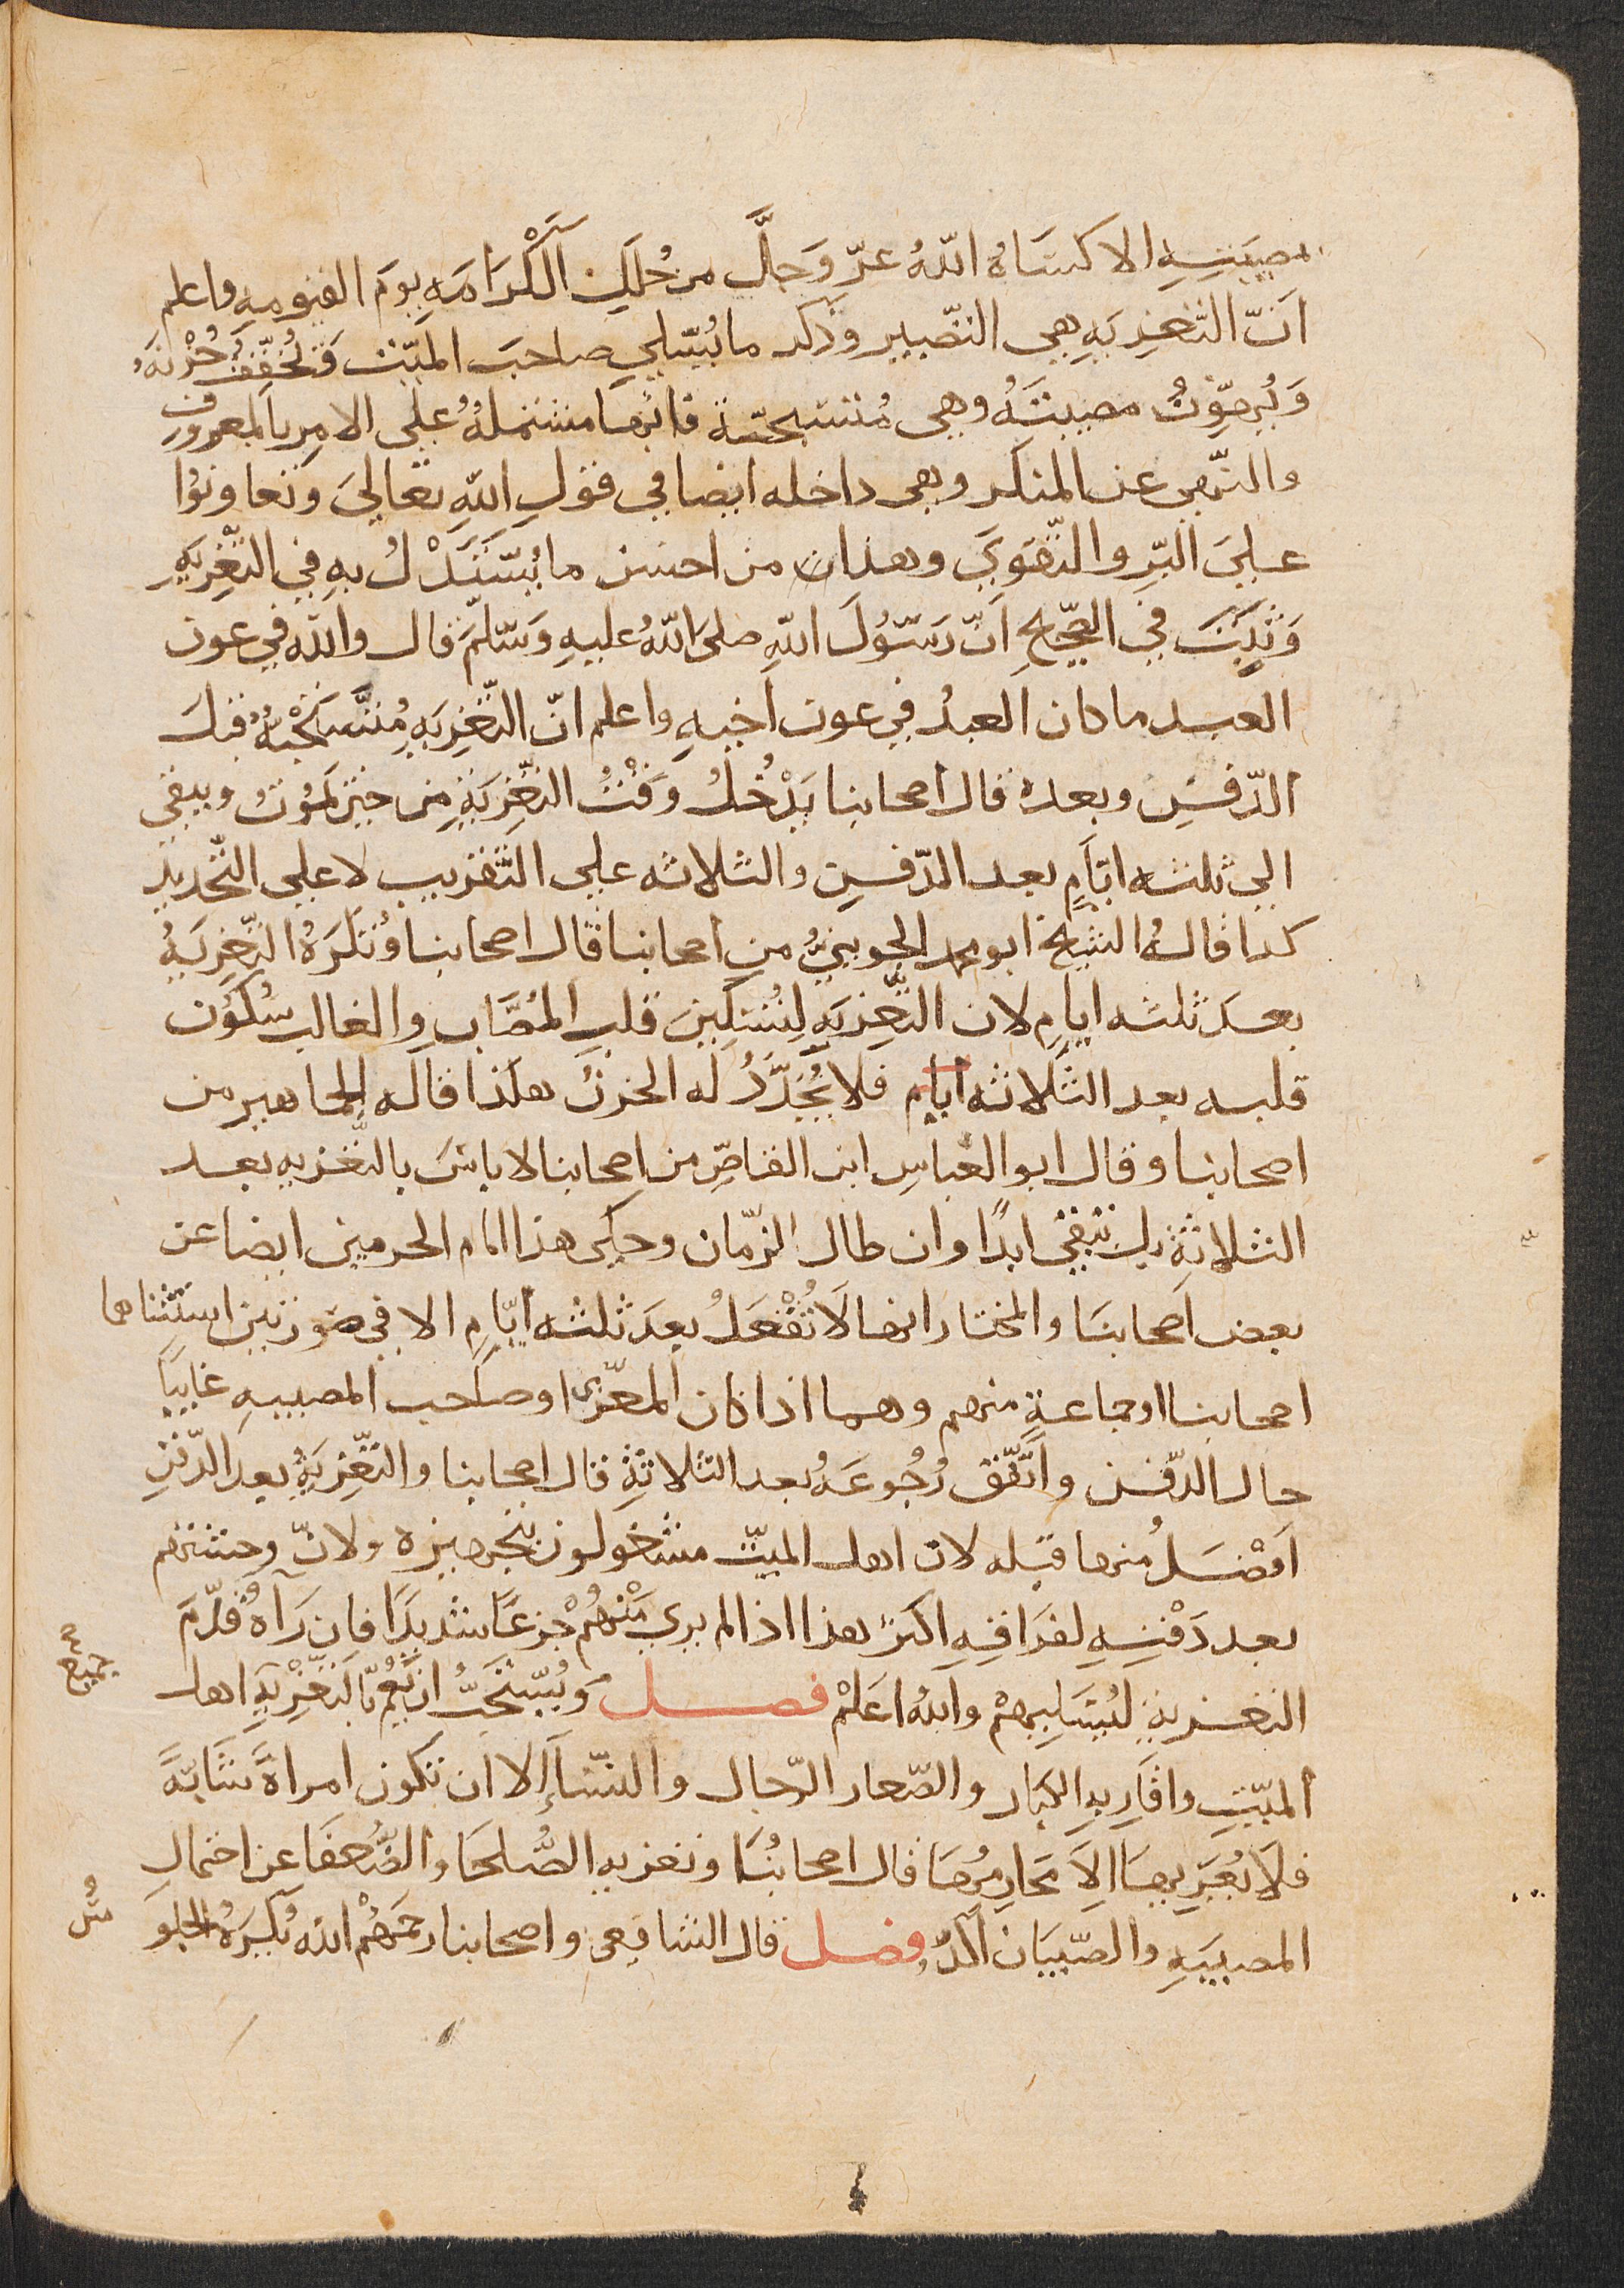 مصيبتِهِ الا كسَاهُ اللهُ عزّ وَجلَّ من حُلَلِ الْكَرَامَةِ يومَ القيٰمهِ واعلم
انّ التّعزِيَهِ هي التصّبير وذكر ما يُسَلي صاحبَ الميّت وَيُخفِّفُ حُزْنَهُ
وَيُهوِّنُ مصيبتَهُ وهي مُستحبّة فانّها مشتملةٌ علي الامِر بالمعروف
والنّهي عن المنكر وهي داخله ايضا في قولِ اللهِ تعَالَي وتعاونُوا
علي البِرّ والتّقوَي وهذا من احسن ما يُستَدَلُ بهِ في التَّعْزِيَهِ
وَثَبَتَ في الصّحِيحِ انّ رَسُولَ اللهِ صلى اللهُ عليهِ وَسَلّمَ قال واللهُ في عون
العبد ما كان العبدُ في عون اخيهِ واعلم انّ التَّعْزِيَهِ مُستَحَبّهٌ قبلَ
الدّفنِ وبعدهُ قال اصحابنا يَدْخُلُ وَقْتُ التّعْزِيَةِ مِن حين يَمُوتُ ويبقي
الي ثلثه ايّامٍ بعد الدّفنِ والثلاثه علي التّقريب لا علي التّحديدِ
كذا قالهُ الشيخ ابو محمد الجوينيُّ من اصحابنا قال اصحابنا وتُكرَهُ التّعْزِيَهُ
بعدَ ثلثه ايامِ لان التّعْزِيَهِ لِتُسكِينَ قلبِ المُصَابِ والغالب سُكُون
قلبه بعد الثّلاثه ايام فلا يُجَدّدُ له الحزنُ هكذا قاله الجماهير من
اصحابنا وقال ابو العباسِ ابن القاصّ من اصحابنا لا باسَ بالتّعزيه بعد
الثلاثةِ بل تبقي ابدًا وان طال الزّمان وحكي هذا امام الحرمين ايضا عن
بعض اَصحابنَا والمختار انها لَا تُفْعَلُ بعدَ ثلثه ايّامِ الا في صورتين استثناهما
اصحابنا او جماعة منهم وهما اذا كان المعزّي او صاحب المصيبهِ غايبًا
حال الدّفن واتَّفق رُجُوعَهُ بعد الثلاثةِ قال اصحابنا والتّعْزِيَهُ بعد الدّفنِ
افضَلُ منها قبله لان اهل الميّت مشغولون بتجهيزه ولانّ وحشتهم
بعد دَفْنِهِ لفراقِهِ اكثر هذا اذا لم يري مِنْهُمْ جزعًا شديدًا فان رَآهُ قدّمَ
التعزيةِ لِيُسَلِيهمْ واللهُ اعَلمْ فصل وَيُسْتحَبُّ ان يَعُمّ بالتّعْزِيَهِ اهل
جميع
الميّتِ واقَارِبهِ الكبار والصّغار الرّجال والنسّاَء إلا ان تكون امراَةً شَابّةً
فلَا يُعَزِيهَا الاَ مَحارِمُهَا قال اصحابُنَا وتعزيهِ الصُّلحَا والضُّعفَا عن احتمال
المصيبَهِ والصّبيَان آكدُ فصل قال الشافعي واصحابنا رحمَهُمْ الله يُكرَهُ الجلو
سُ